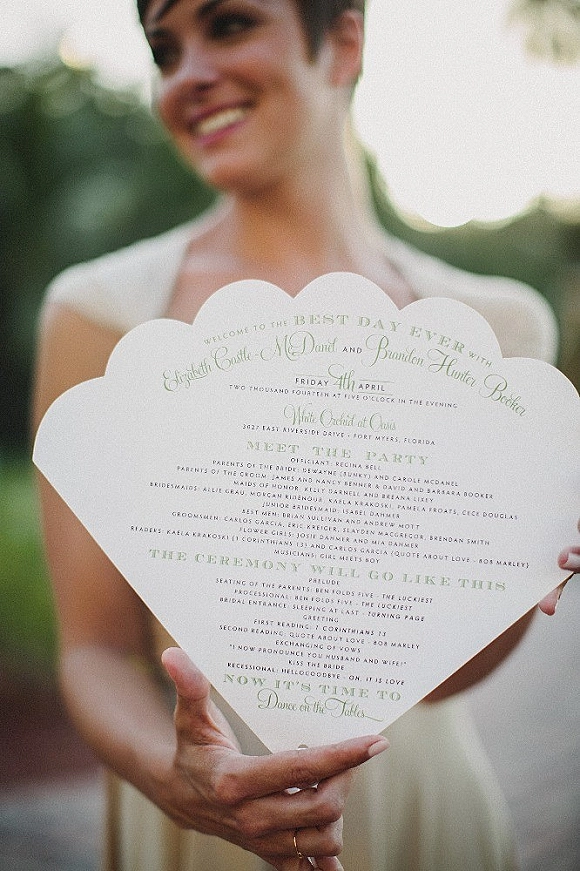 WELCOME TO THE BEST DAY EVER WITH
Elizabeth Castle-McDanel AND Brandon Hunter Booker
FRIDAY 4th APRIL
TWO THOUSAND FOURTEEN AT FIVE O'CLOCK IN THE EVENING
White Orchid at Oasis
3027 EAST RIVERSIDE DRIVE - FORT MYERS, FLORIDA
MEET THE PARTY
OFFICIANT: REGINA BELL
PARENTS OF THE BRIDE: DEWAYNE (BUNKY) AND CAROLE MCDANEL
PARENTS OF THE GROOM: JAMES AND NANCY BENNER & DAVID AND BARBARA BOOKER
MAIDS OF HONOR: KELLY DARNELL AND BREANA LIXEY
BRIDESMAIDS: ALLIE GRAU, MORGAN RIDENOUR, KAELA KRAKOSKI, PAMELA FROATS, CECE DOUGLAS
JUNIOR BRIDESMAID: ISABEL DAHMER
BEST MEN: BRIAN SULLIVAN AND ANDREW MOTT
GROOMSMEN: CARLOS GARCIA, ERIC KREIGER, SLAYDEN MACGREGOR, BRENDAN SMITH
FLOWER GIRLS: JOSIE DAHMER AND MIA DAHMER
READERS: KAELA KRAKOSKI (1 CORINTHIANS 13) AND CARLOS GARCIA (QUOTE ABOUT LOVE - BOB MARLEY)
MUSICIANS: GIRL MEETS BOY
THE CEREMONY WILL GO LIKE THIS
PRELUDE
SEATING OF THE PARENTS: BEN FOLDS FIVE - THE LUCKIEST
PROCESSIONAL: BEN FOLDS FIVE - THE LUCKIEST
BRIDAL ENTRANCE: SLEEPING AT LAST - TURNING PAGE
GREETING
FIRST READING: 1 CORINTHIANS 13
SECOND READING: QUOTE ABOUT LOVE - BOB MARLEY
EXCHANGING OF VOWS
"I NOW PRONOUNCE YOU HUSBAND AND WIFE!"
KISS THE BRIDE
RECESSIONAL: HELLOGOODBYE - OH, IT IS LOVE
NOW IT'S TIME TO
Dance on the Tables